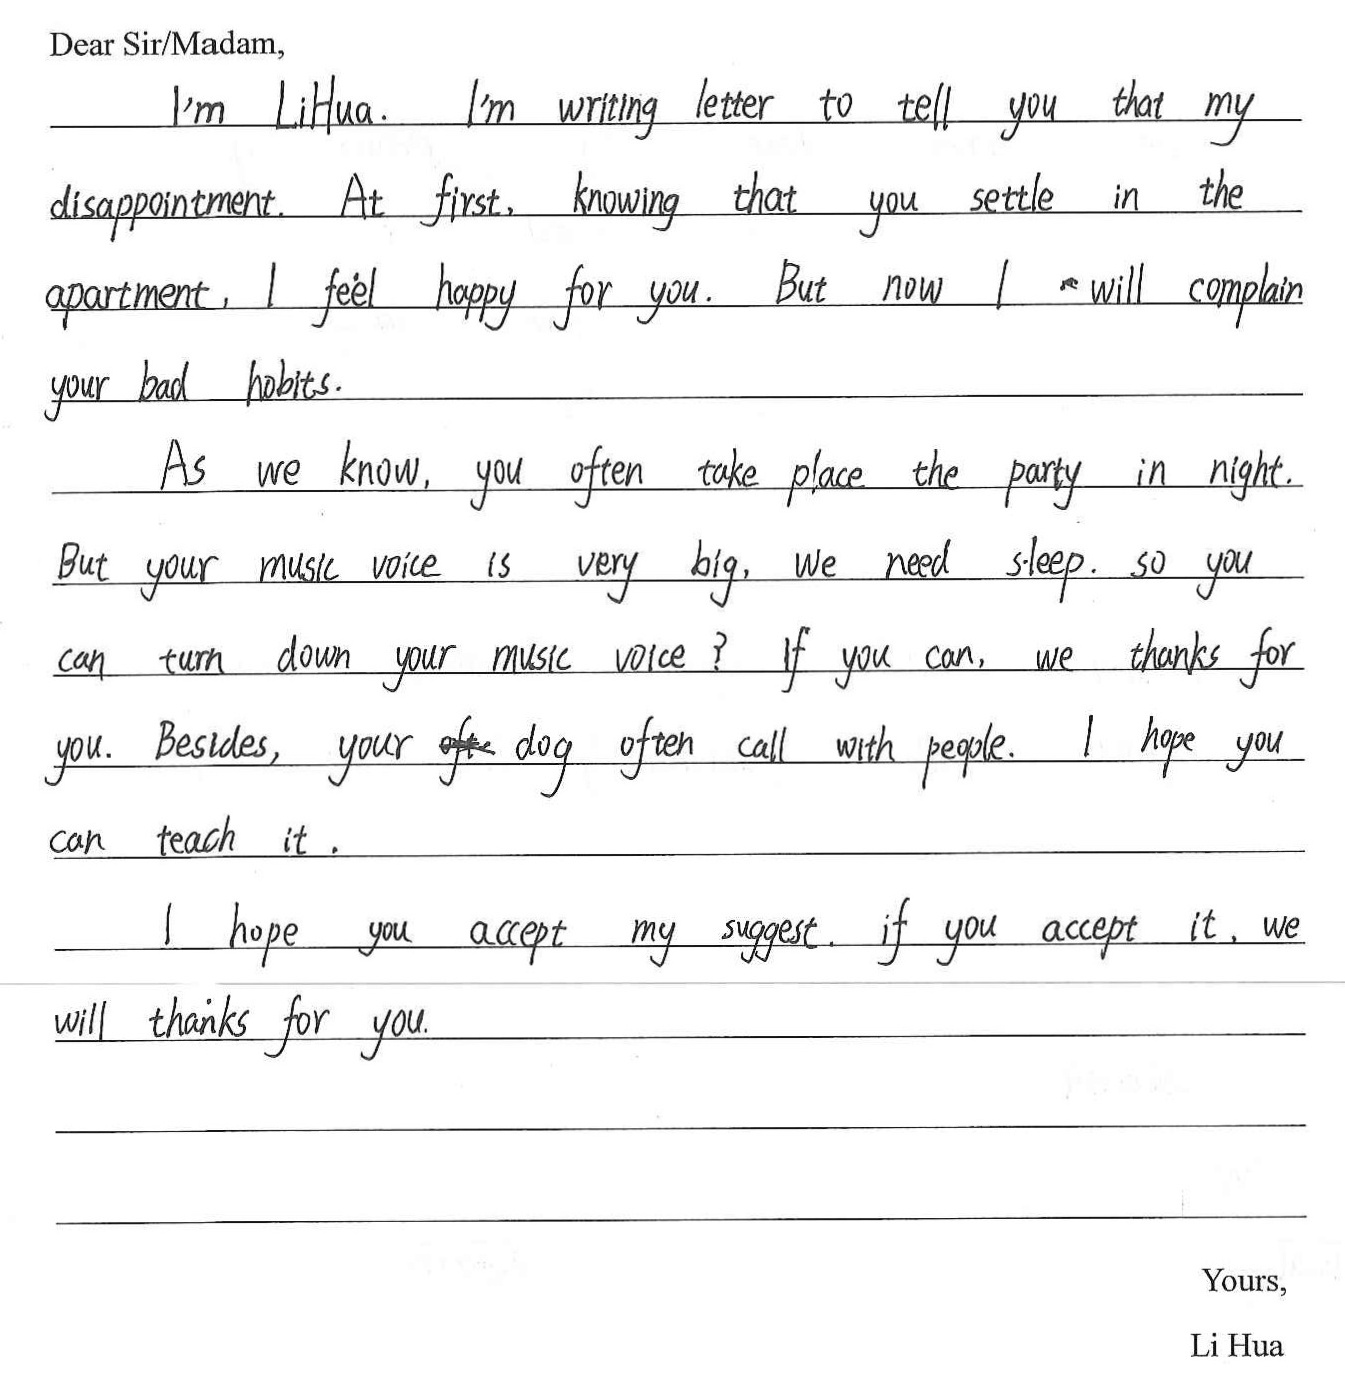 Dear Sir/Madam,
I'm LiHua. I'm writing letter to tell you that my
disappointment. At first, knowing that you settle in the
apartment, I feel happy for you. But now I will complain
your bad hobits.
As we know, you often take place the party in night.
But your music voice is very big, we need sleep. so you
can turn down your music voice? If you can, we thanks for
you. Besides, your dog often call with people. I hope you
can teach it.
I hope you accept my suggest. if you accept it, we
will thanks for you.
Yours,
Li Hua